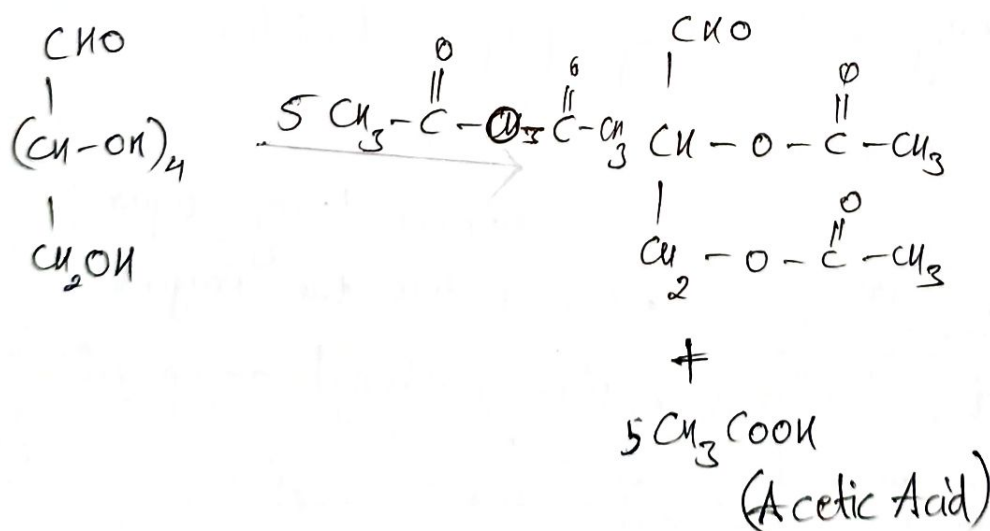 CHO
|
(CH-OH)4
|
CH2OH
5 CH3-C(=O)-O-C(=O)-CH3
CHO
|
CH-O-C(=O)-CH3
|
CH2-O-C(=O)-CH3
+
5 CH3COOH
(Acetic Acid)